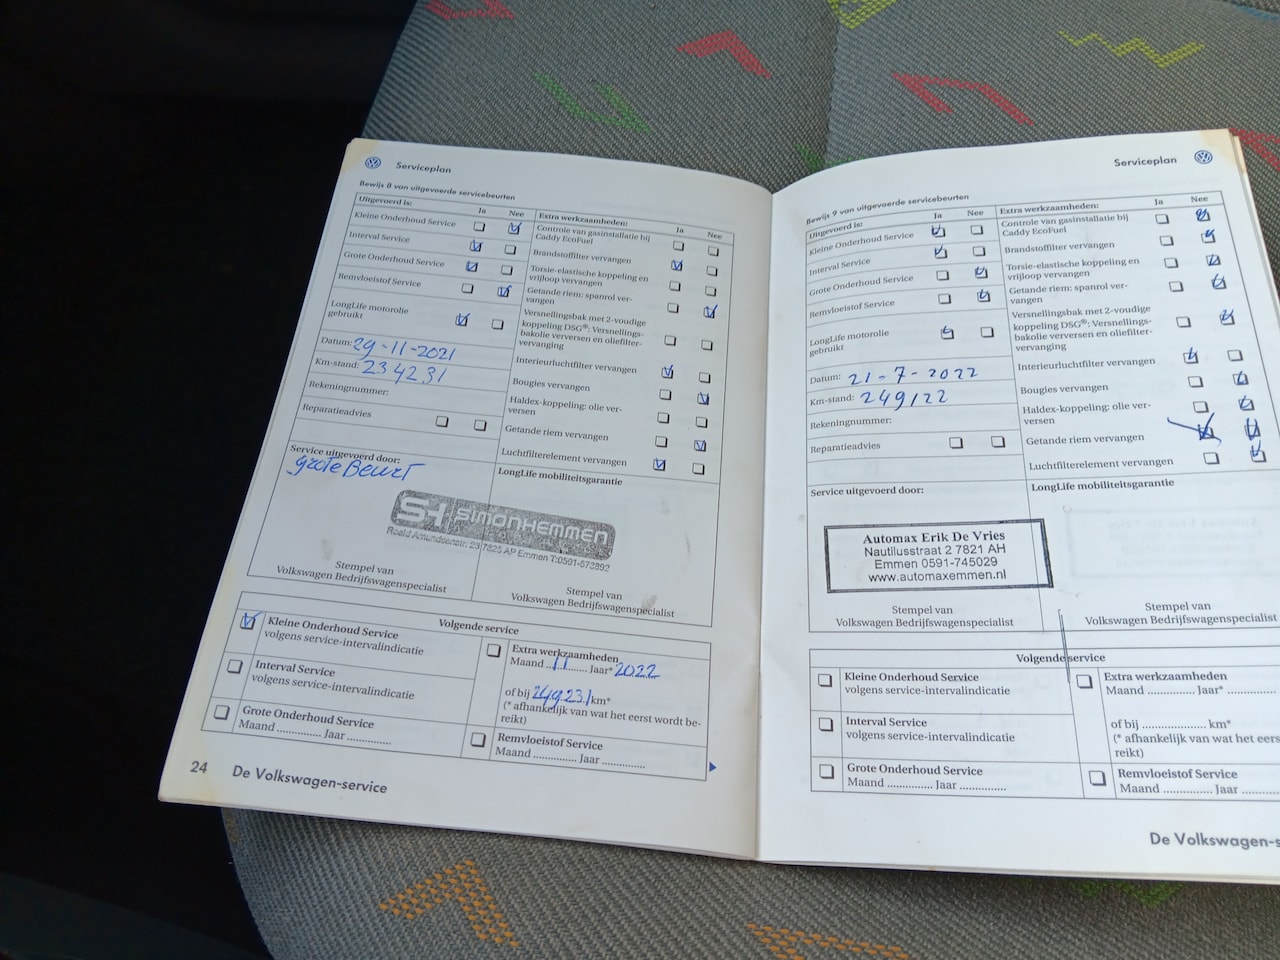 Serviceplan
Bewijs 8 van uitgevoerde servicebeurten
Uitgevoerd is:
Ja
Nee
Kleine Onderhoud Service
Interval Service
Grote Onderhoud Service
Remvloeistof Service
LongLife motorolie
gebruikt
Datum: 29-11-2021
Km-stand: 234231
Rekeningnummer:
Reparatieadvies
Extra werkzaamheden:
Ja
Nee
Controle van gasinstallatie bij
Caddy EcoFuel
Brandstoffilter vervangen
Torsie-elastische koppeling en
vrijloop vervangen
Getande riem: spanrol ver-
vangen
Versnellingsbak met 2-voudige
koppeling DSG®: Versnellings-
bakolie verversen en oliefilter-
vervanging
Interieurluchtfilter vervangen
Bougies vervangen
Haldex-koppeling: olie ver-
versen
Getande riem vervangen
Luchtfilterelement vervangen
Service uitgevoerd door:
grote Beurt
LongLife mobiliteitsgarantie
SH SIMONHEMMEN
Roald Amundsenstr. 23 7825 AP Emmen T:0591-673992
Stempel van
Volkswagen Bedrijfswagenspecialist
Stempel van
Volkswagen Bedrijfswagenspecialist
Volgende service
Kleine Onderhoud Service
volgens service-intervalindicatie
Interval Service
volgens service-intervalindicatie
Grote Onderhoud Service
Maand .............. Jaar ..............
Extra werkzaamheden
Maand ..11....... Jaar* 2022
of bij 249231 km*
(* afhankelijk van wat het eerst wordt be-
reikt)
Remvloeistof Service
Maand .............. Jaar ..............
24
De Volkswagen-service
Serviceplan
Bewijs 9 van uitgevoerde servicebeurten
Uitgevoerd is:
Ja
Nee
Kleine Onderhoud Service
Interval Service
Grote Onderhoud Service
Remvloeistof Service
LongLife motorolie
gebruikt
Datum: 21-7-2022
Km-stand: 249122
Rekeningnummer:
Reparatieadvies
Extra werkzaamheden:
Ja
Nee
Controle van gasinstallatie bij
Caddy EcoFuel
Brandstoffilter vervangen
Torsie-elastische koppeling en
vrijloop vervangen
Getande riem: spanrol ver-
vangen
Versnellingsbak met 2-voudige
koppeling DSG®: Versnellings-
bakolie verversen en oliefilter-
vervanging
Interieurluchtfilter vervangen
Bougies vervangen
Haldex-koppeling: olie ver-
versen
Getande riem vervangen
Luchtfilterelement vervangen
Service uitgevoerd door:
LongLife mobiliteitsgarantie
Automax Erik De Vries
Nautilusstraat 2 7821 AH
Emmen 0591-745029
www.automaxemmen.nl
Stempel van
Volkswagen Bedrijfswagenspecialist
Stempel van
Volkswagen Bedrijfswagenspecialist
Volgende service
Kleine Onderhoud Service
volgens service-intervalindicatie
Interval Service
volgens service-intervalindicatie
Grote Onderhoud Service
Maand .............. Jaar ..............
Extra werkzaamheden
Maand .............. Jaar* ..............
of bij .................... km*
(* afhankelijk van wat het eerst
reikt)
Remvloeistof Service
Maand .............. Jaar ..............
De Volkswagen-s